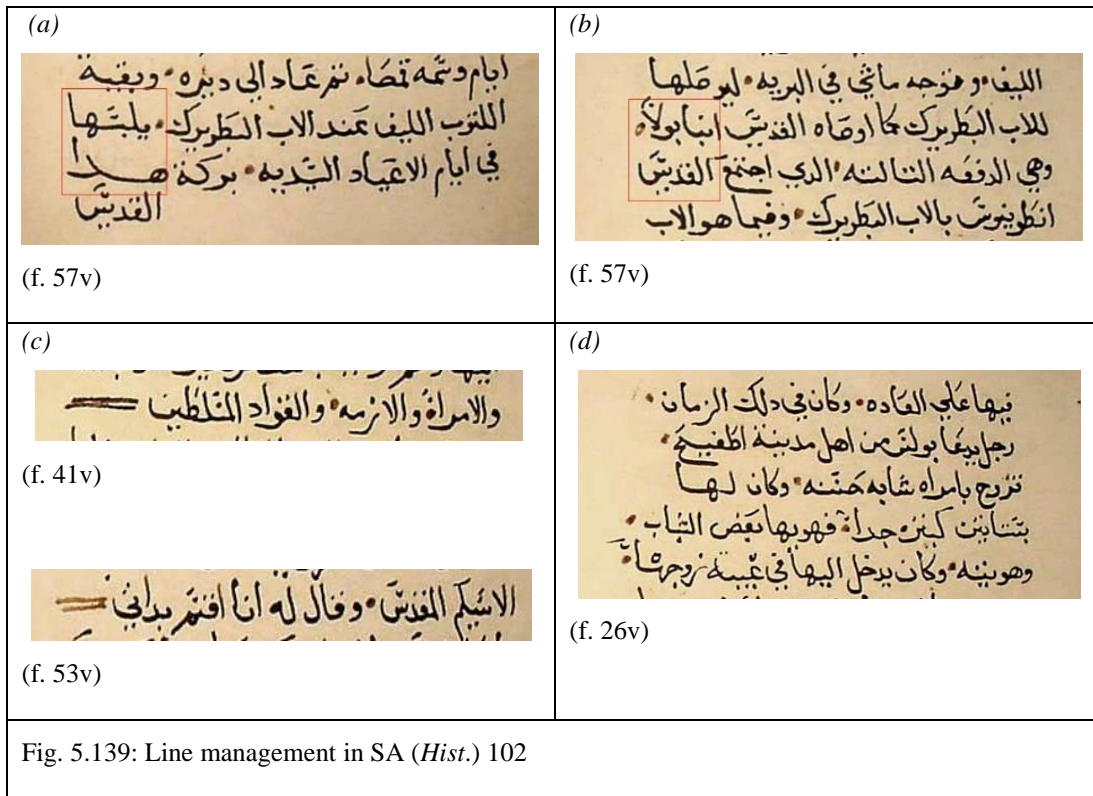 (a)
ايام وتمه قمصا • تم عاد الي ديره • وبقية
الليف عند الاب البطريرك • يلبسها
في ايام الاعياد السيديه • بركة هدا
القديس
(f. 57v)
(b)
الليف • و توجه ماشي في البريه • ليوصلها
للاب البطريرك كما اوصاه القديس انبا بولا •
وهي الدفعه التالته • الدي اجتمع القديس
انطونيوس بالاب البطريرك • وفيما هو الاب
(f. 57v)
(c)
والامراة والازمه • والفواد
(f. 41v)
الاسكيم المقدس • وقال له انا اقتم بداتي
(f. 53v)
(d)
فيها علي العاده • وكان في دلك الزمان •
رجل يدعا بولس من اهل مدينة اطفيح •
تزوج بامراه شابه حسنه • وكان لها
جدا • فهويها بعض الشباب •
وهويته • وكان يدخل اليها في غيبة زوجها •
(f. 26v)
Fig. 5.139: Line management in SA (Hist.) 102